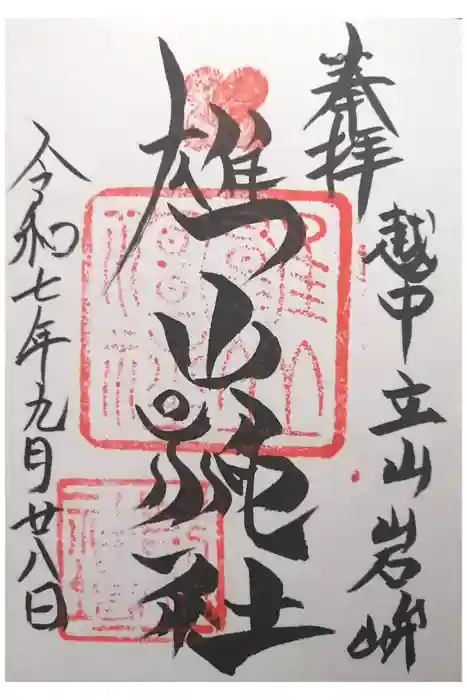 奉拝
越中立山岩峅
雄山神社
令和七年九月廿八日